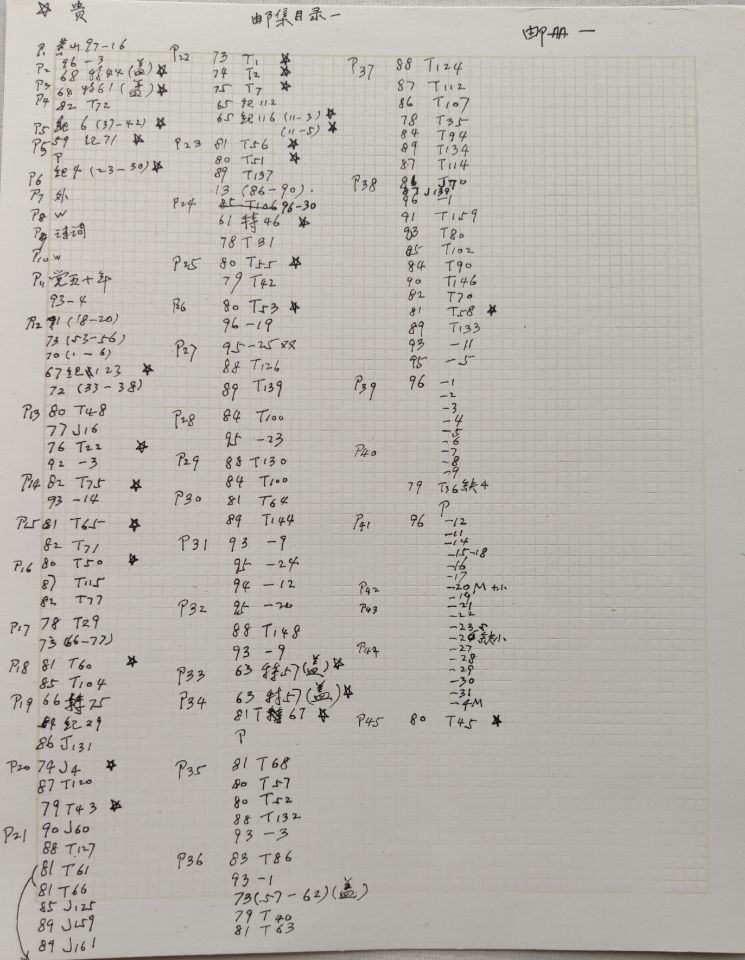 ☆ 贵
邮集目录一
邮册一
P1 黄山 97-16
96-3
P2 68 特44(盖)☆
P3 64 特61(盖)☆
P4 82 T72
P5 纪6(37-42)☆
P5 59 纪71 ☆
P
P6 纪4(23-30)☆
P7 外
P8 W
P9 诗词
P10 W
P11 党五十年
93-4
P12 91(18-20)
73(53-56)
70(1-6)
67纪123 ☆
72(33-38)
P13 80 T48
77 J16
76 T22 ☆
92 -3
P14 82 T75 ☆
93 -14
P25 81 T65 ☆
82 T71
P16 80 T50 ☆
87 T115
82 T77
P17 78 T29
73(66-77)
P18 81 T60 ☆
85 T104
P19 66 特75
84 纪29
86 J131
P20 74 J4 ☆
87 T120
79 T43 ☆
P21 90 J60
88 T127
81 T61
81 T66
85 J125
89 J159
89 J161
P22 73 T1 ☆
74 T2 ☆
75 T7 ☆
65 纪112
65 纪116(11-3)☆
(11-5)☆
P23 81 T56 ☆
80 T51 ☆
89 T137
13(86-90).
P24 85 T106 96-30
61 特46 ☆
78 T31
P25 80 T55 ☆
79 T42
P26 80 T53 ☆
96 -19
P27 95 -25
88 T126
89 T139
P28 84 T100
95 -23
P29 88 T130
84 T100
P30 81 T64
89 T144
P31 93 -9
95 -24
94 -12
P32 95 -20
88 T148
93 -9
P33 63 特57(盖)☆
P34 63 特57(盖)☆
81 T 67 ☆
P
P35 81 T68
80 T57
80 T52
88 T132
93 -3
P36 83 T86
93 -1
73(57-62)(盖)
79 T40
81 T63
P37 88 T124
87 T112
86 T107
78 T35
84 T94
89 T134
87 T114
P38 86 J70
87 J139
96 -1
91 T159
93 T80
85 T102
84 T90
90 T146
82 T70
81 T58 ☆
89 T133
93 -11
95 -5
P39 96 -1
-2
-3
-4
-5
-6
P40 -7
-8
-9
79 T36缺4
P
P41 96 -12
-11
-14
-15-18
-16
-17
P42 -20M
-19
P43 -21
-22
-23
-26缺
P44 -27
-28
-29
-30
-31
-4M
P45 80 T45 ☆